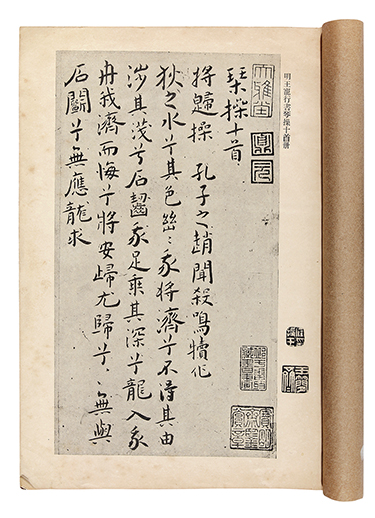 明王寵行書琴操十首册
大雅堂
琹操十首
將歸操 孔子之趙聞殺鳴犢作
狄之水兮其色幽〻我將濟兮不得其由
涉其淺兮石齧我足乘其深兮龍入我
舟我濟而悔兮將安歸尤歸兮〻〻無與
石鬭兮無應龍求